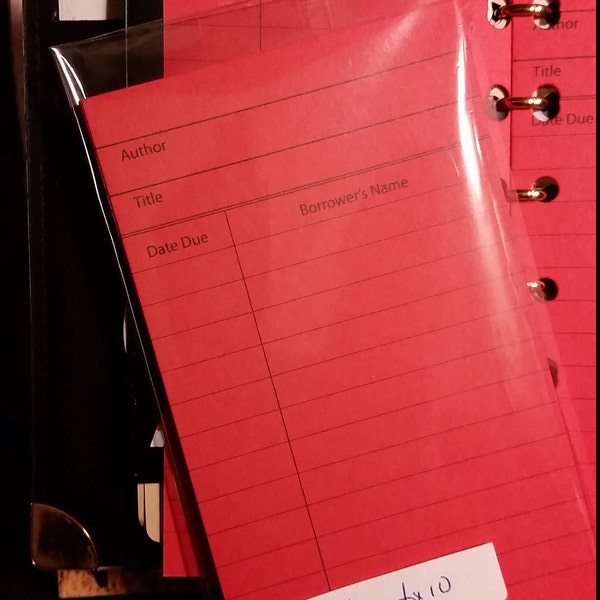 Author
Title
Date Due
Borrower's Name
Author
Title
Date Due
x10